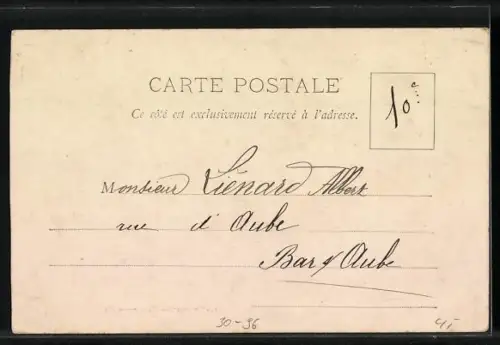 CARTE POSTALE
Ce côté est exclusivement réservé à l'adresse.
10
Monsieur Liénard Albert
rue d'Aube
Bar s/ Aube
30-96